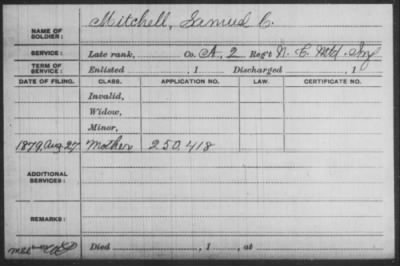 NAME OF SOLDIER: Mitchell, Samuel C.
SERVICE: Late rank, Co. A, 2 Reg't N. C. Mtd. Inf.
TERM OF SERVICE: Enlisted , 1 Discharged , 1
DATE OF FILING. CLASS. APPLICATION NO. LAW. CERTIFICATE NO.
Invalid,
Widow,
Minor,
1879, Aug. 27 Mother 250,418
ADDITIONAL SERVICES:
REMARKS:
Died , 1 , at